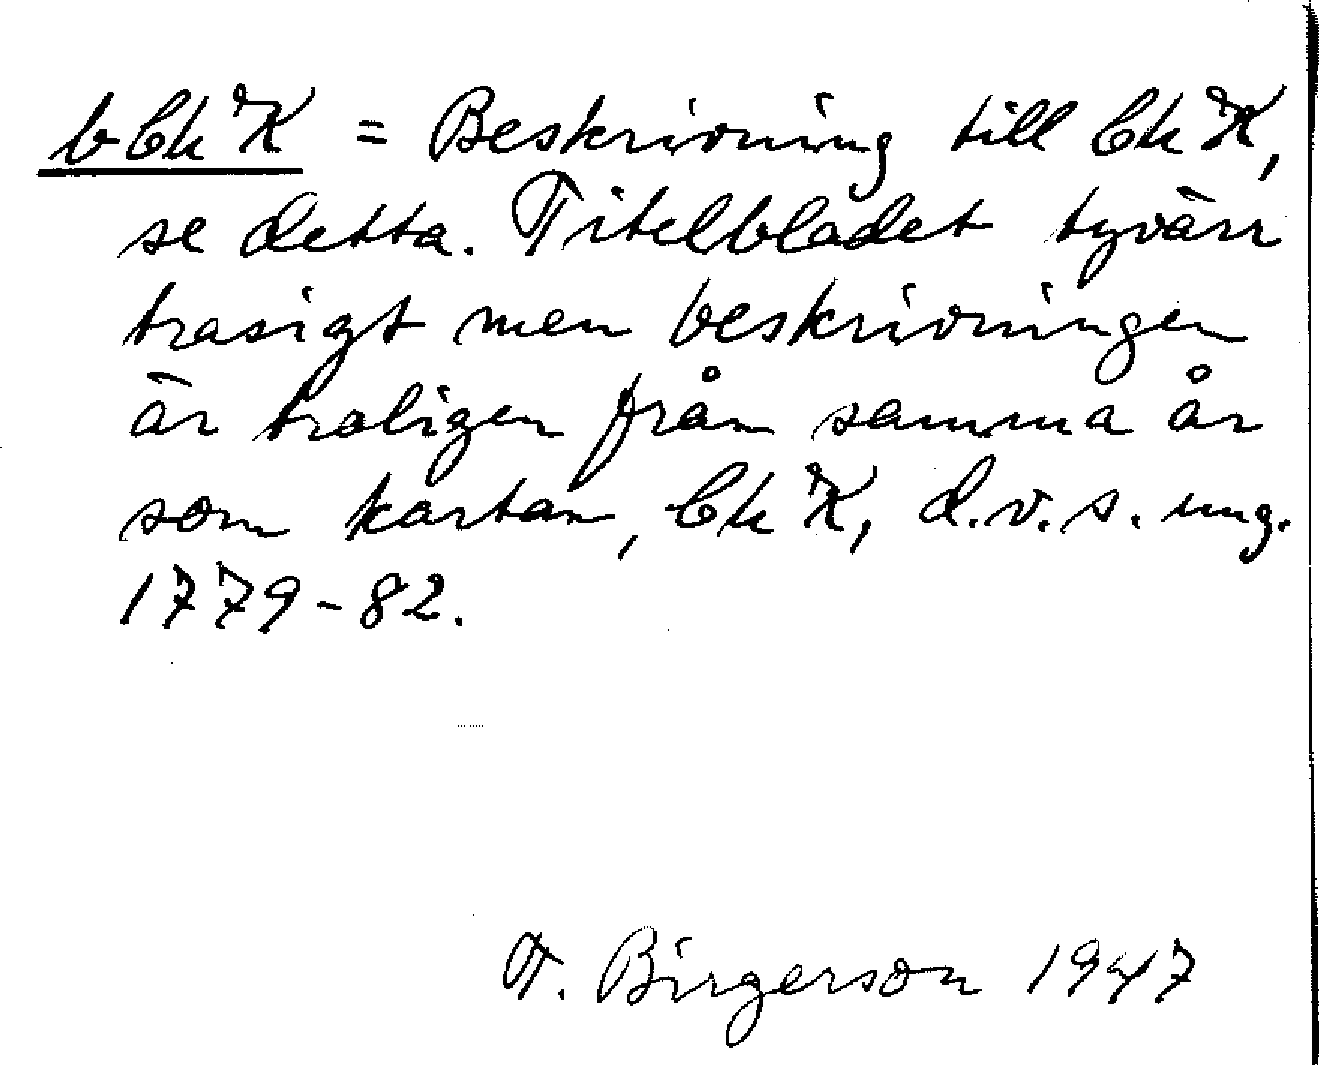 bChK = Beskrivning till ChK,
se detta. Titelbladet tyvärr
trasigt men beskrivningen
är troligen från samma år
som kartan, ChK, d.v.s. ung.
1779-82.
T. Birgerson 1947